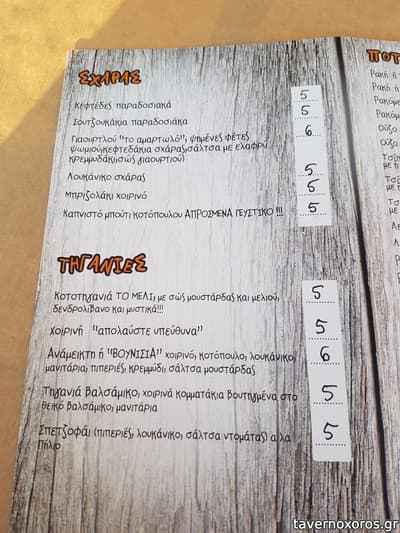 ΣΧΑΡΑΣ
Κεφτέδες παραδοσιακά 5
Σουτζουκάκια παραδοσιακά 5
Γιαουρτλού "το αμαρτωλό", ψημένες φέτες
ψωμιού,κεφτεδάκια σχάρας,σάλτσα με ελαφρύ
κρεμμυδάκι,σώς γιαουρτιού) 6
Λουκάνικο σχάρας 5
Μπριζολάκι χοιρινό 5
Καπνιστό μπούτι κοτόπουλου ΑΠΡΟΣΜΕΝΑ ΓΕΥΣΤΙΚΟ !!! 5
ΤΗΓΑΝΙΕΣ
Κοτοτηγανιά ΤΟ ΜΕΛΙ, με σώς μουστάρδας και μελιού,
δενδρολίβανο και μυστικά!!! 5
Χοιρινή "απολαύστε υπεύθυνα" 5
Ανάμεικτη ή "ΒΟΥΝΙΣΙΑ" χοιρινό, κοτόπουλο, λουκάνικο,
μανιτάρια, πιπεριές, κρεμμύδι, σάλτσα μουστάρδας 6
Τηγανιά βαλσάμικο, χοιρινά κομματάκια βουτηγμένα στο
θεϊκό βαλσάμικο, μανιτάρια 5
Σπετζοφάι (πιπεριές, λουκάνικο, σάλτσα ντομάτας) α λα
Πήλιο 5
ΠΟΤ
Ρακή ή
Ρακή ή
Ρακόμε
Ρακόμ
Ούζο
Ούζο
tavernoxoros.gr